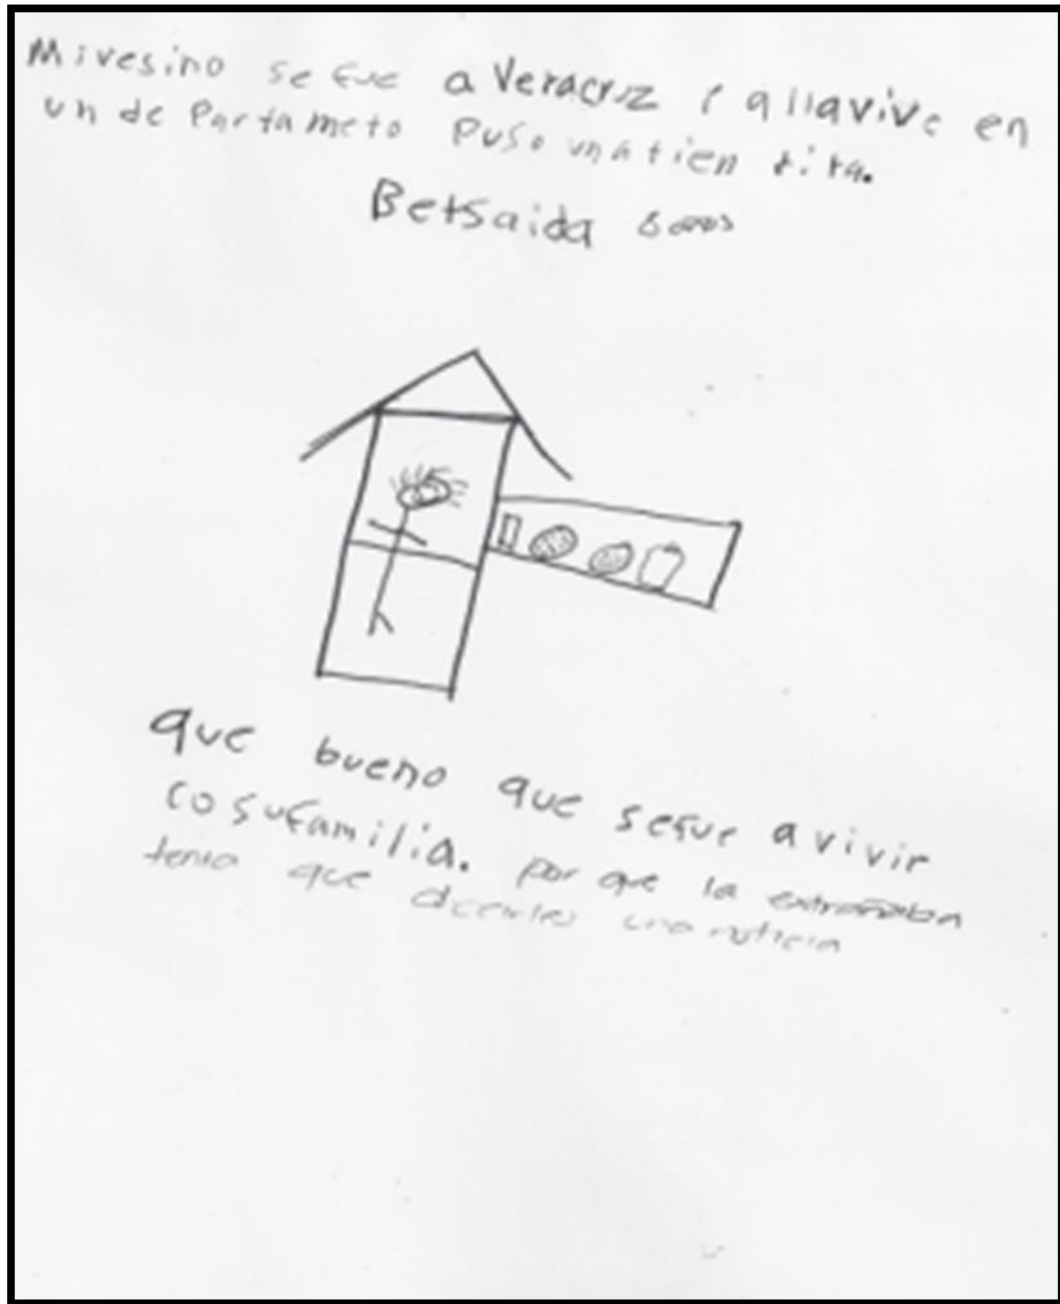 Mivesino se fue a Veracruz i allavive en
un de Partameto Puso unatien tita.
Betsaida 6 años
que bueno que sefue avivir
co sufamilia. por que la extrañaban
tenia que decirles una noticia